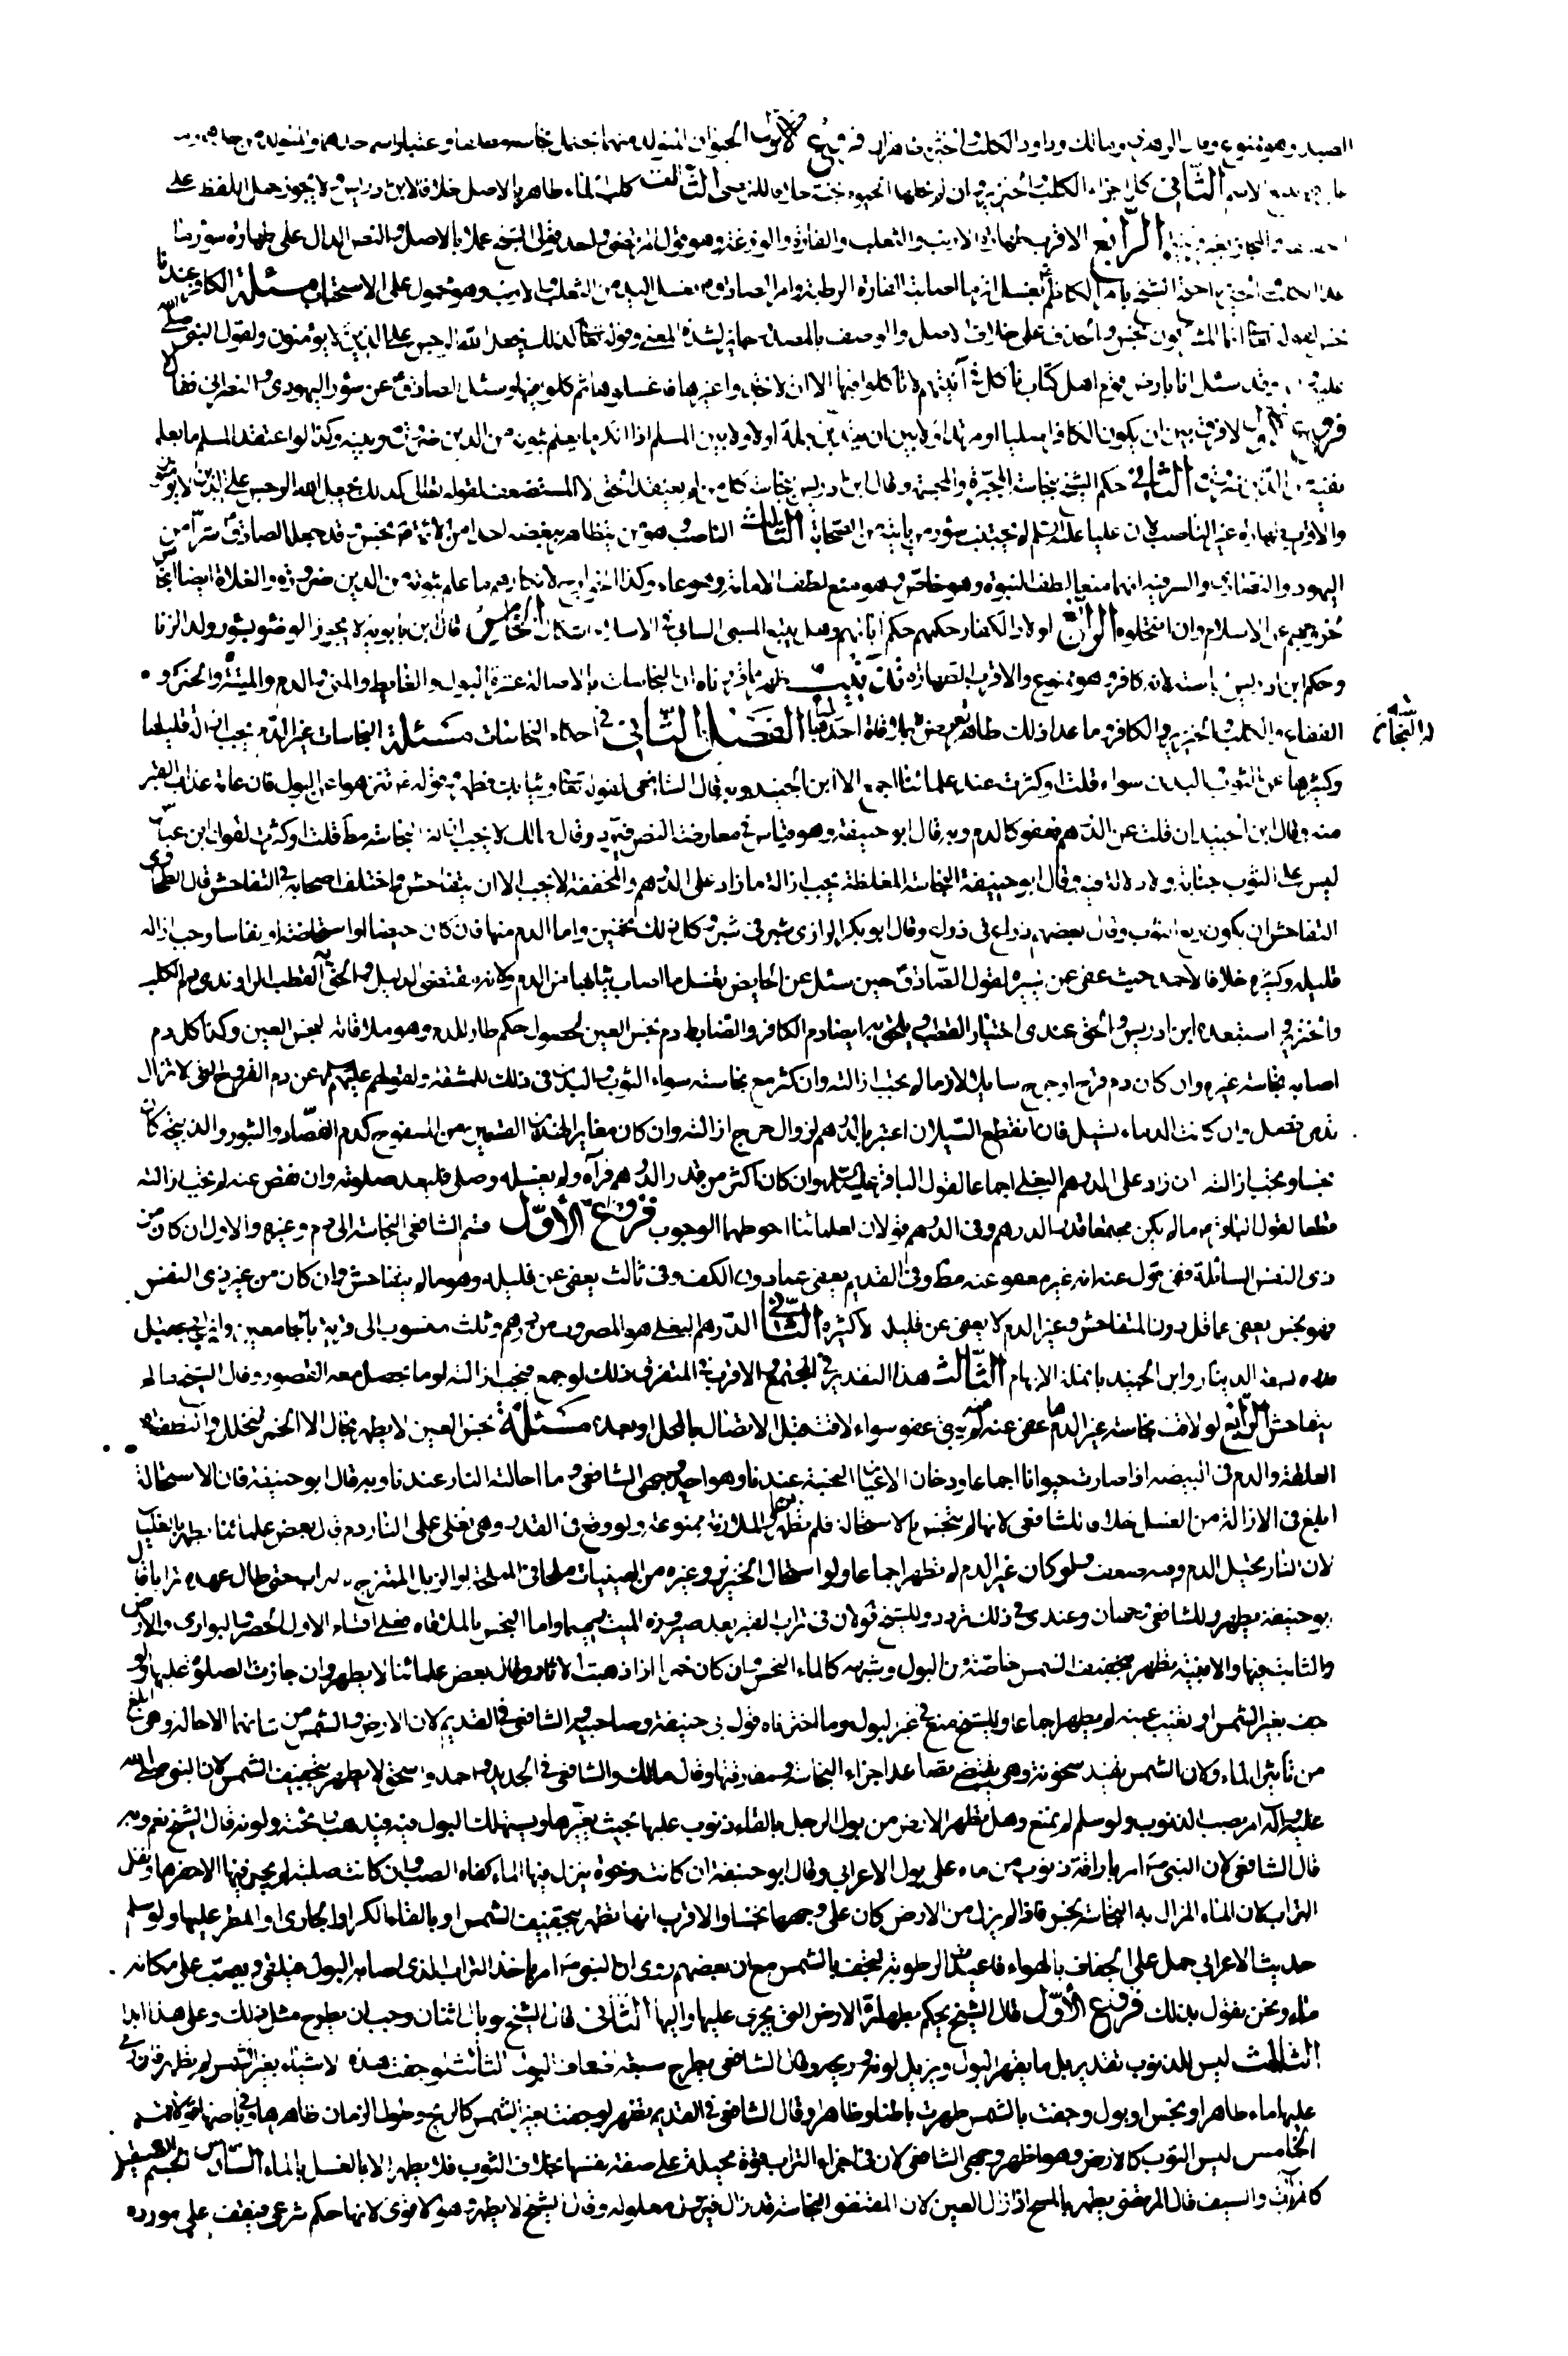 الصيد وهو ممنوع وقال الزهري ومالك وداود الكلب والخنزير طاهران فروع الأول الحيوان المتولد منهما يحتمل نجاسته مطلقا واعتبار اسم احدهما والمتولد من احدهما
الاسم الثاني كل اجزاء الكلب والخنزير وان لم تحلها الحيوة نجسة خلافا للمرتضى الثالث كلب الماء طاهر بالاصل خلافا لابن ادريس ولا يجوز حمل اللفظ على
الرابع الاقرب طهارة الارنب والثعلب والفارة والوزغة وهو قول المرتضى واحد قولي الشيخ عملا بالاصل والنص الدال على طهارة سؤر ما
عدا الكلب والخنزير احتج الشيخ بامر الكاظم بغسل اثر ما اصابته الفارة الرطبة وامر الصادق بغسل اليد من الثعلب والارنب وهو محمول على الاستحباب مسئلة الكافر عندنا
نجس لقوله تعالى انما المشركون نجس والحذف على خلاف الاصل والوصف بالمصدر جايز لشدة المعنى وقوله تعالى كذلك يجعل الله الرجس على الذين لا يؤمنون ولقول النبي صلى الله
عليه وقد سئل انا بارض قوم اهل كتاب نأكل في آنيتهم لا تأكلوا فيها الا ان لا تجدوا غيرها فاغسلوها ثم كلوا فيها وسئل الصادق عن سؤر اليهودي والنصراني فقال لا
فروع الأول لا فرق بين ان يكون الكافر اصليا او مرتدا ولا بين ان يتدين بملة او لا ولا بين المسلم اذا انكر ما يعلم ثبوته من الدين ضرورة وبينه وكذا لو اعتقد المسلم ما يعلم
نفيه من الدين ضرورة الثاني حكم الشيخ بنجاسة المجبرة والمجسمة وقال ابن ادريس بنجاسة كل من لم يعتقد الحق الا المستضعف لقوله تعالى كذلك يجعل الله الرجس على الذين لا يؤمنون
والاقرب طهارة غير الناصب لان عليا عليه السلم لم يجتنب سؤر من باينه من الصحابة الثالث الناصب وهو من يتظاهر ببغضه احد من الائمة نجس وقد جعله الصادق شرا من
اليهود والنصارى والسر فيه انهما منعا لطف النبوة وهو خاص وهو منع لطف الامامة وهو عام وكذا الخوارج لانكارهم ما علم ثبوته من الدين ضرورة والغلاة ايضا انجاس
لخروجهم عن الاسلام وان انتحلوه الرابع اولاد الكفار حكمهم حكم آبائهم وهل يتبع المسبى السابي في الاسلام اشكال الخامس قال ابن بابويه لا يجوز الوضوء بسؤر ولد الزنا
وحكم ابن ادريس بنجاسته لانه كافر وهو ممنوع والاقرب الطهارة تذنيب ظهر مما قررناه ان النجاسات بالاصالة عشرة البول والغايط والمني والدم والميتة والخمر و
الفقاع والكلب والخنزير والكافر وما عدا ذلك طاهر تعرض له بملاقاة احدها الفصل الثاني في احكام النجاسات مسئلة النجاسات غير الدم يجب ازالة قليلها
وكثيرها عن الثوب والبدن سواء قلت او كثرت عند علمائنا اجمع الا ابن الجنيد وبه قال الشافعي لقوله تعالى وثيابك فطهر وقوله ع تنزهوا عن البول فان عامة عذاب القبر
منه وقال ابن الجنيد ان قلت عن الدرهم فعفو كالدم وبه قال ابو حنيفة وهو قياس في معارضة النص فيرد وقال مالك لا يجب ازالة النجاسة مط قلت او كثرت لقول ابن عباس
ليس على الثوب جنابة ولا دلالة فيه وقال ابو حنيفة النجاسة المغلظة يجب ازالة ما زاد على الدرهم والمخففة لا يجب الا ان يتفاحش واختلف اصحابه في التفاحش قال الطحاوي
التفاحش ان يكون ربع الثوب وقال بعضهم ذراع في ذراع وقال ابو بكر الرازي شبر في شبر وكل ذلك تخمين واما الدم منها فان كان حيضا او استحاضة او نفاسا وجب ازالة
قليله وكثيره خلافا لاحمد حيث عفى عن يسيره لقول الصادق حين سئل عن الحايض تغسل ما اصاب ثيابها من الدم ولانه مقتضى الدليل والحق به القطب الراوندي دم الكلب
والخنزير واستبعده ابن ادريس والحق عندي اختيار القطب ويلحق به ايضا دم الكافر والضابط دم نجس العين لحصول حكم طار للدم وهو ملاقاته لنجس العين وكذا كل دم
اصابه نجاسة غيره وان كان دم قرح او جرح سايل لازما لم يجب ازالته وان كثر مع نجاسته سواء الثوب والبدن في ذلك للمشقة ولقولهم عليهم السلم عن دم القروح التي لا تزال
تدمى تصلى وان كانت الدماء تسيل فان انقطع السيلان اعتبر بالدرهم لزوال حرج ازالته وان كان مغايرا لهذين القسمين من المسفوح كدم الفصاد والبثور والذبيحة كان
نجسا ويجب ازالته ان زاد على الدرهم البغلي اجماعا لقول الباقر عليه السلم وان كان اكثر من قدر الدرهم فرآه ولم يغسله وصلى فليعد صلوته وان نقص عنه لم يجب ازالته
قطعا لقول الباقر ما لم يكن مجتمعا قدر الدرهم وفي الدرهم قولان لعلمائنا احوطهما الوجوب فروع الأول قسم الشافعي النجاسة الى دم وغيره والاول ان كان من
ذي النفس السائلة ففي قول عنه انه غير معفو عنه مط وفي القديم يعفى عما دون الكف وفي ثالث يعفى عن قليله وهو ما لم يتفاحش وان كان من غير ذي النفس
فهو نجس يعفى عما قل دون المتفاحش وغير الدم لا يعفى عن قليله ولا كثيره الثاني الدرهم البغلي هو المضروب من درهم وثلث منسوب الى قرية بالجامعين وابن ابي عقيل
قدره بسعة الدينار وابن الجنيد بانملة الابهام الثالث هذا التقدير في المجتمع والاقرب في المتفرق ذلك لو جمع فيجب ازالته لو ما تحصل معه القصور وقال الشيخ ما لم
يتفاحش الرابع لو لاقت نجاسة غير الدم ما عفى عنه لم يبق عفو سواء لاقت قبل الاتصال بالمحل او بعده مسئلة نجس العين لا يطهر بحال الا الخمر يتخلل والنطفة
العلقة والدم في البيضة اذا صارت حيوانا اجماعا ودخان الاعيان النجسة عندنا وهو احد وجهي الشافعي وما احالته النار عندنا وبه قال ابو حنيفة فان الاستحالة
ابلغ في الازالة من الغسل خلافا للشافعي لانها لم ينجس بالاستحالة فلم يطهر بها والملازمة ممنوعة ولو وقع في القدر وهي تغلي على النار دم قال بعض علمائنا يطهر بالغليان
لان النار تحيل الدم وفيه ضعف ولو كان غير الدم لم يطهر اجماعا ولو استحال الخنزير وغيره من العينيات ملحا في المملحة او الزبل الممتزج بالتراب حتى طال عهده ترابا قال
ابو حنيفة يطهر وللشافعي وجهان وعندي في ذلك تردد وللشيخ قولان في تراب القبر بعد صيرورة الميت رميما واما النجس بالملاقاه فعلى اقسام الاول الحصر والبواري والارض
والثابت فيها والابنية يطهر بتجفيف الشمس خاصة من البول وشبهه كالماء النجس وان كان خمرا اذا ذهبت الاثار وقال بعض علمائنا لا يطهر وان جازت الصلوة عليها ولو
جف بغير الشمس او بقيت عينه لم يطهر اجماعا وللشيخ منع في غير البول وما اخترناه قول ابي حنيفة وصاحبيه والشافعي في القديم لان الارض والشمس من شانهما الاحالة وهي ابلغ
من تأثير الماء ولان الشمس تفيد سخونة وهي تقتضي تصاعد اجزاء النجاسة ومفارقتها وقال مالك والشافعي في الجديد واحمد واسحق لا يطهر بتجفيف الشمس لان النبي صلى الله
عليه وآله امر بصب الذنوب ولو سلم لم يمنع وهل يطهر الارض من بول الرجل بالقاء ذنوب عليها بحيث يغمرها ويستهلك البول فيه فيذهب رائحته ولونه قال الشيخ نعم وبه
قال الشافعي لان النبي ص امر باراقة ذنوب من ماء على بول الاعرابي وقال ابو حنيفة ان كانت رخوة ينزل فيها الماء كفاه الصب وان كانت صلبة لم يجز فيها الا حفرها ونقل
التراب لان الماء المزال به النجاسة نجس فاذا لم يزل من الارض كان على وجهها نجسا والاقرب انها تطهر بتجفيف الشمس او بالقاء الكر او الجاري او المطر عليها ولو سلم
حديث الاعرابي حمل على الجفاف بالهواء فاعيدت الرطوبة لتجف بالشمس مع ان بعضهم روى ان النبي ص امر باخذ التراب الذي اصابه البول فيلقى ويصب على مكانه
ماء ونحن نقول بذلك فروع الأول قال الشيخ يحكم بطهارة الارض التي يجري عليها واليها الثاني قال الشيخ لو بال اثنان وجب ان يطرح مثل ذلك وعلى هذا ابدا
الثالث ليس للذنوب تقدير بل ما يقهر البول ويزيل لونه وريحه وقال الشافعي يطرح سبعة اضعاف البول الثالث لو جفت هذه الاشياء بغير الشمس لم يطهر فان رمي
عليها ماء طاهر او نجس او بول وجفت بالشمس طهرت باطنا وظاهرا وقال الشافعي في القديم تطهر لو جفت بغير الشمس كالريح وطول الزمان ظاهرها وفي باطنها قولان
الخامس ليس الثوب كالارض وهو اظهر وجهي الشافعي لان في اجزاء التراب قوة محيلة على صفة نفسها بخلاف الثوب فلا يطهر الا بالغسل بالماء السادس الجسم الصيقل
كالمرآت والسيف قال المرتضى يطهر بالمسح اذا زال العين لان المقتضي النجاسة قد زال فيزول معلوله وقال الشيخ لا يطهر وهو الاقوى لانها حكم شرعي فيقف على مورده